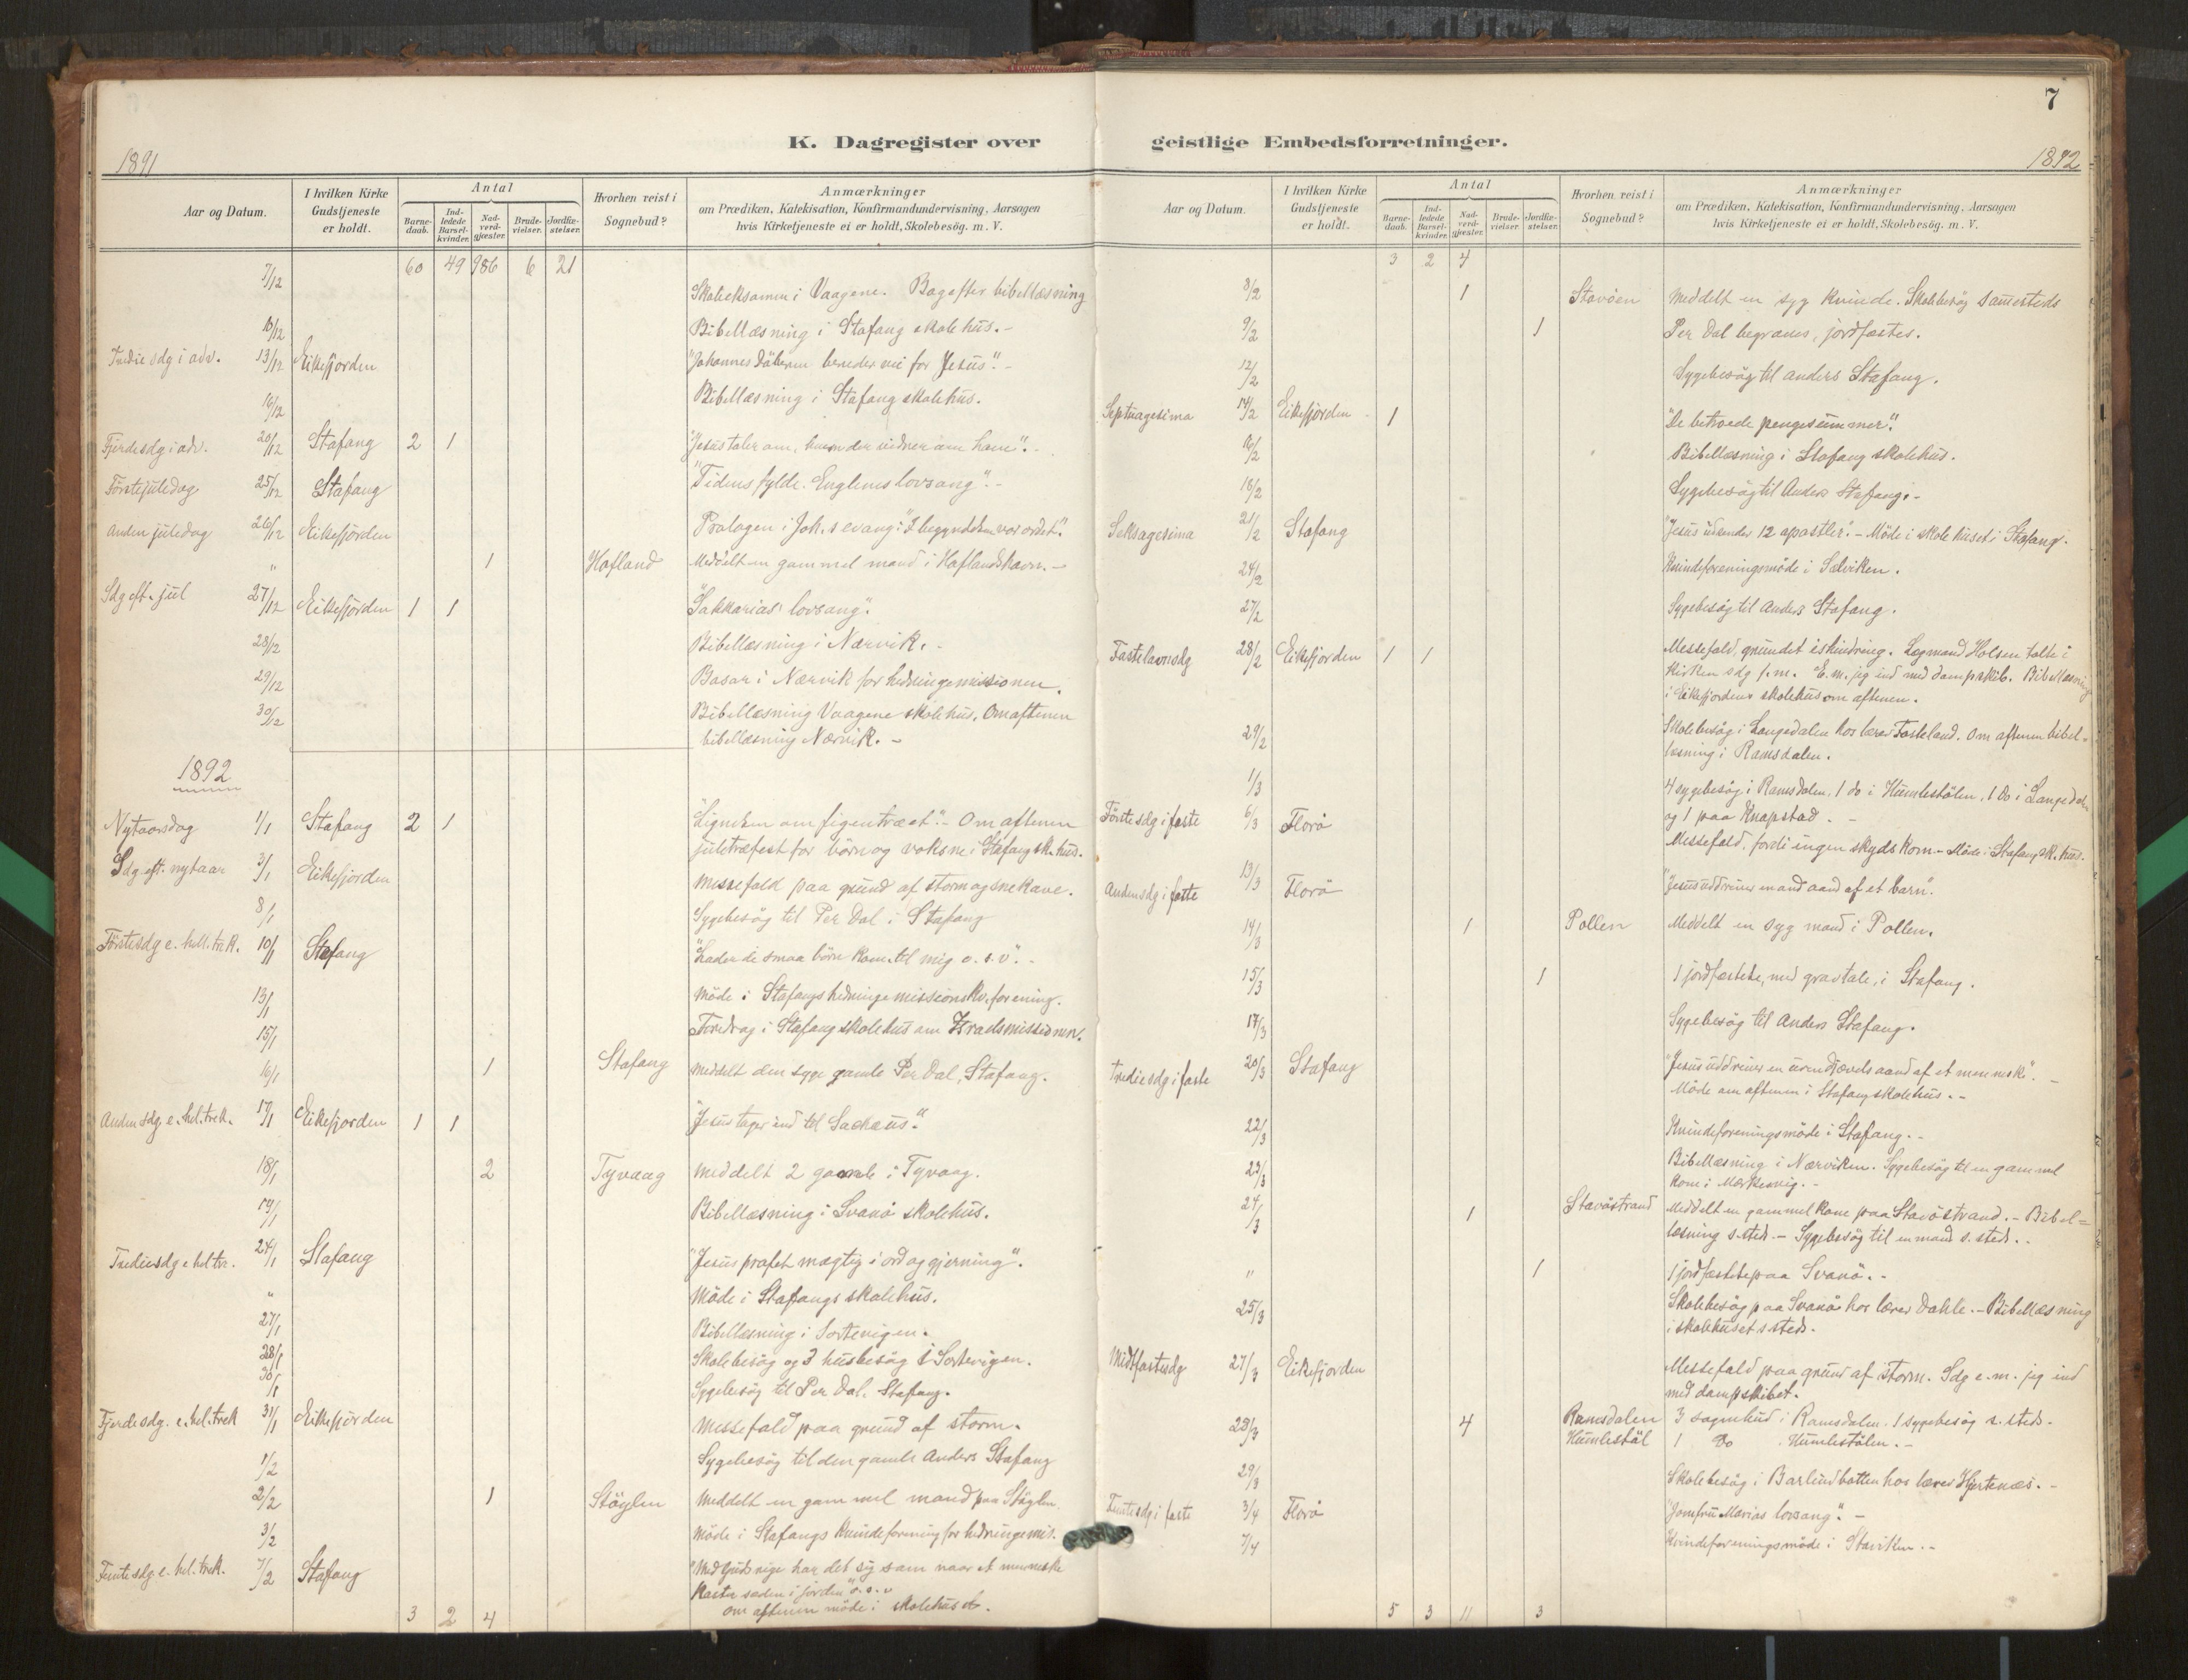 7
K. Dagregister over geistlige Embedsforretninger.
1891
1892
Aar og Datum. I hvilken Kirke Gudstjeneste er holdt. Antal Barnedaab. Indledede Barselkvinder. Nadverdgjæster. Brudevielser. Jordfæstelser. Hvorhen reist i Sognebud? Anmærkninger om Prædiken, Katekisation, Konfirmandundervisning, Aarsagen hvis Kirketjeneste ei er holdt, Skolebesög. m. V.
60 49 986 6 21
7/12 Skoleeksamen i Vaagene. Bagefter bibellæsning
10/12 Bibellæsning i Stafang skolehus. -
Tredie sdg i adv. 13/12 Eikefjorden "Johannes Döberen bereder vei for Jesus". -
16/12 Bibellæsning i Stafang skolehus.
Fjerde sdg i adv. 20/12 Stafang 2 1 "Jesus taler om, hvem der vidner om ham". -
Förstejuledag 25/12 Stafang "Tidens fylde. Englenes lovsang". -
Anden juledag 26/12 Eikefjorden Prologen i Joh.s evang: "I begyndelsen var ordet".
" 1 Hofland Meddelt en gammel mand i Haflandshavn. -
Sdg eft. jul 27/12 Eikefjorden 1 1 "Sakkarias' lovsang".
28/12 Bibellæsning i Nærvik. -
29/12 Basar i Nærvik for hedningemissionen.
30/12 Bibellæsning Vaagene skolehus. Om aftenen
bibellæsning Nærvik. -
1892
Nytaarsdag 1/1 Stafang 2 1 "Lignelsen om figentræet". - Om aftenen
juletræfest for börn og voksne i Stafang sk.hus.
Sdg eft. nytaar 3/1 Eikefjorden Messefald paa grund af storm og snekave.
8/1 Sygebesög til Per Dal i Stafang
Förstesdg e. hell. trek. 10/1 Stafang "Lader de smaa börn kom. til mig o. s. v." -
13/1 Möde i Stafangs hedningemissionskv.forening.
15/1 Foredrag i Stafang skolehus om Israelsmissionen.
16/1 1 Stafang Meddelt den syge gamle Per Dal, Stafang.
Anden sdg. e. hel. trek. 17/1 Eikefjorden 1 1 "Jesus tager ind til Sackæus".
18/1 2 Tyvaag Meddelt 2 gamle i Tyvaag.
19/1 Bibellæsning i Svanö skolehus.
Tredie sdg e hel tr. 24/1 Stafang "Jesus profet mægtig i ord og gjerning".
" Möde i Stafangs skolehus.
27/1 Bibellæsning i Sortevigen.
28/1 Skolebesög og 3 husbesög i Sortevigen.
30/1 Sygebesög til Per Dal, Stafang.
Fjerde sdg. e. hel. trek 31/1 Eikefjorden Messefald paa grund af storm.
1/2 Sygebesög til den gamle Anders Stafang
2/2 1 Stöylen Meddelt en gammel mand paa Stöylen.
3/2 Möde i Stafangs kvindeforening for hedningemis.
Femte sdg. e. hel. trek. 7/2 Stafang "Med Guds rige har det sig som naar et menneske
kaster sæden i jorden" o. s. v
om aftenen möde i skolehuset.
3 2 4
Aar og Datum. I hvilken Kirke Gudstjeneste er holdt. Antal Barnedaab. Indledede Barselkvinder. Nadverdgjæster. Brudevielser. Jordfæstelser. Hvorhen reist i Sognebud? Anmærkninger om Prædiken, Katekisation, Konfirmandundervisning, Aarsagen hvis Kirketjeneste ei er holdt, Skolebesög. m. V.
3 2 4
8/2 1 Stavöen Meddelt en syg kvinde. Skolebesög sammesteds
9/2 1 Per Dal begraves, jordfæstes.
12/2 Sygebesög til Anders Stafang.
Septuagesima 14/2 Eikefjorden 1 "De betroede pengesummer".
16/2 Bibellæsning i Stafang skolehus.
18/2 Sygebesög til Anders Stafang. -
Seksagesima 21/2 Stafang "Jesus udsender 12 apostler". - Möde i skolehuset i Stafang.
24/2 Kvindeforeningsmöde i Salviken.
27/2 Sygebesög til Anders Stafang.
Fastelavnsdg 28/2 Eikefjorden 1 1 Messefald, grundet ishindring. Lægmand Holsen talte i
kirken sdg f.m. E.m. jeg ind med dampskib. Bibellæsning
i Eikefjordens skolehus om aftenen.
29/2 Skolebesög i Langedalen hos lærer Fasteland. Om aftenen bibel=
læsning i Ramsdalen.
1/3 4 sygebesög i Ramsdalen, 1 do i Humlestölen, 1 do i Langedalen
og 1 paa Knapstad. -
Förstesdg i faste 6/3 Florö Messefald, fordi ingen skyds kom. - Möde i Stafang sk.hus.
Anden sdg i faste 13/3 Florö "Jesus uddriver en ond aand af et barn".
14/3 1 Pollen Meddelt en syg mand i Pollen.
15/3 1 1 jordfæstelse, med gravtale, i Stafang.
17/3 Sygebesög til Anders Stafang.
Trediesdg i faste 20/3 Stafang "Jesus uddriver en uren djævels aand af et menneske". -
Möde om aftenen i Stafang skolehus. -
22/3 Kvindeforeningsmöde i Stafang. -
23/3 Bibellæsning i Nærviken. Sygebesög til en gammel
kone i Mærkesvig. -
24/3 1 Stavöstrand Meddelt en gammel kone paa Stavöstrand. - Bibel=
læsning s. sted. - Sygebesög til en mand s. sted. -
" 1 1 jordfæstelse paa Svanö. -
25/3 Skolebesög paa Svanö hos lærer Dahle. - Bibellæsning
i skolehuset s. sted. -
Midtfastesdg 27/3 Eikefjorden Messefald paa grund af storm. Sdg e. m. jeg ind
med dampskibet.
28/3 4 Ramsdalen 3 sognebud i Ramsdalen. 1 sygebesög s. sted. -
Humlestöl 1 do Humlestölen. -
29/3 Skolebesög i Barlindbotten hos lærer Hjertenæs. -
Femtesdg i faste 3/4 Florö "Jomfru Marias lovsang". -
7/4 Kvindeforeningsmöde i Staviken. -
5 3 11 3